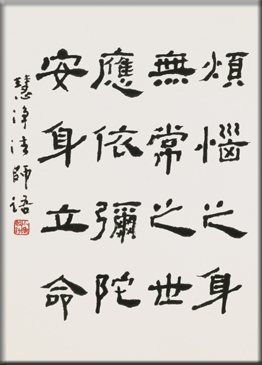 煩惱之身
無常之世
應依彌陀
安身立命
慧淨法師語